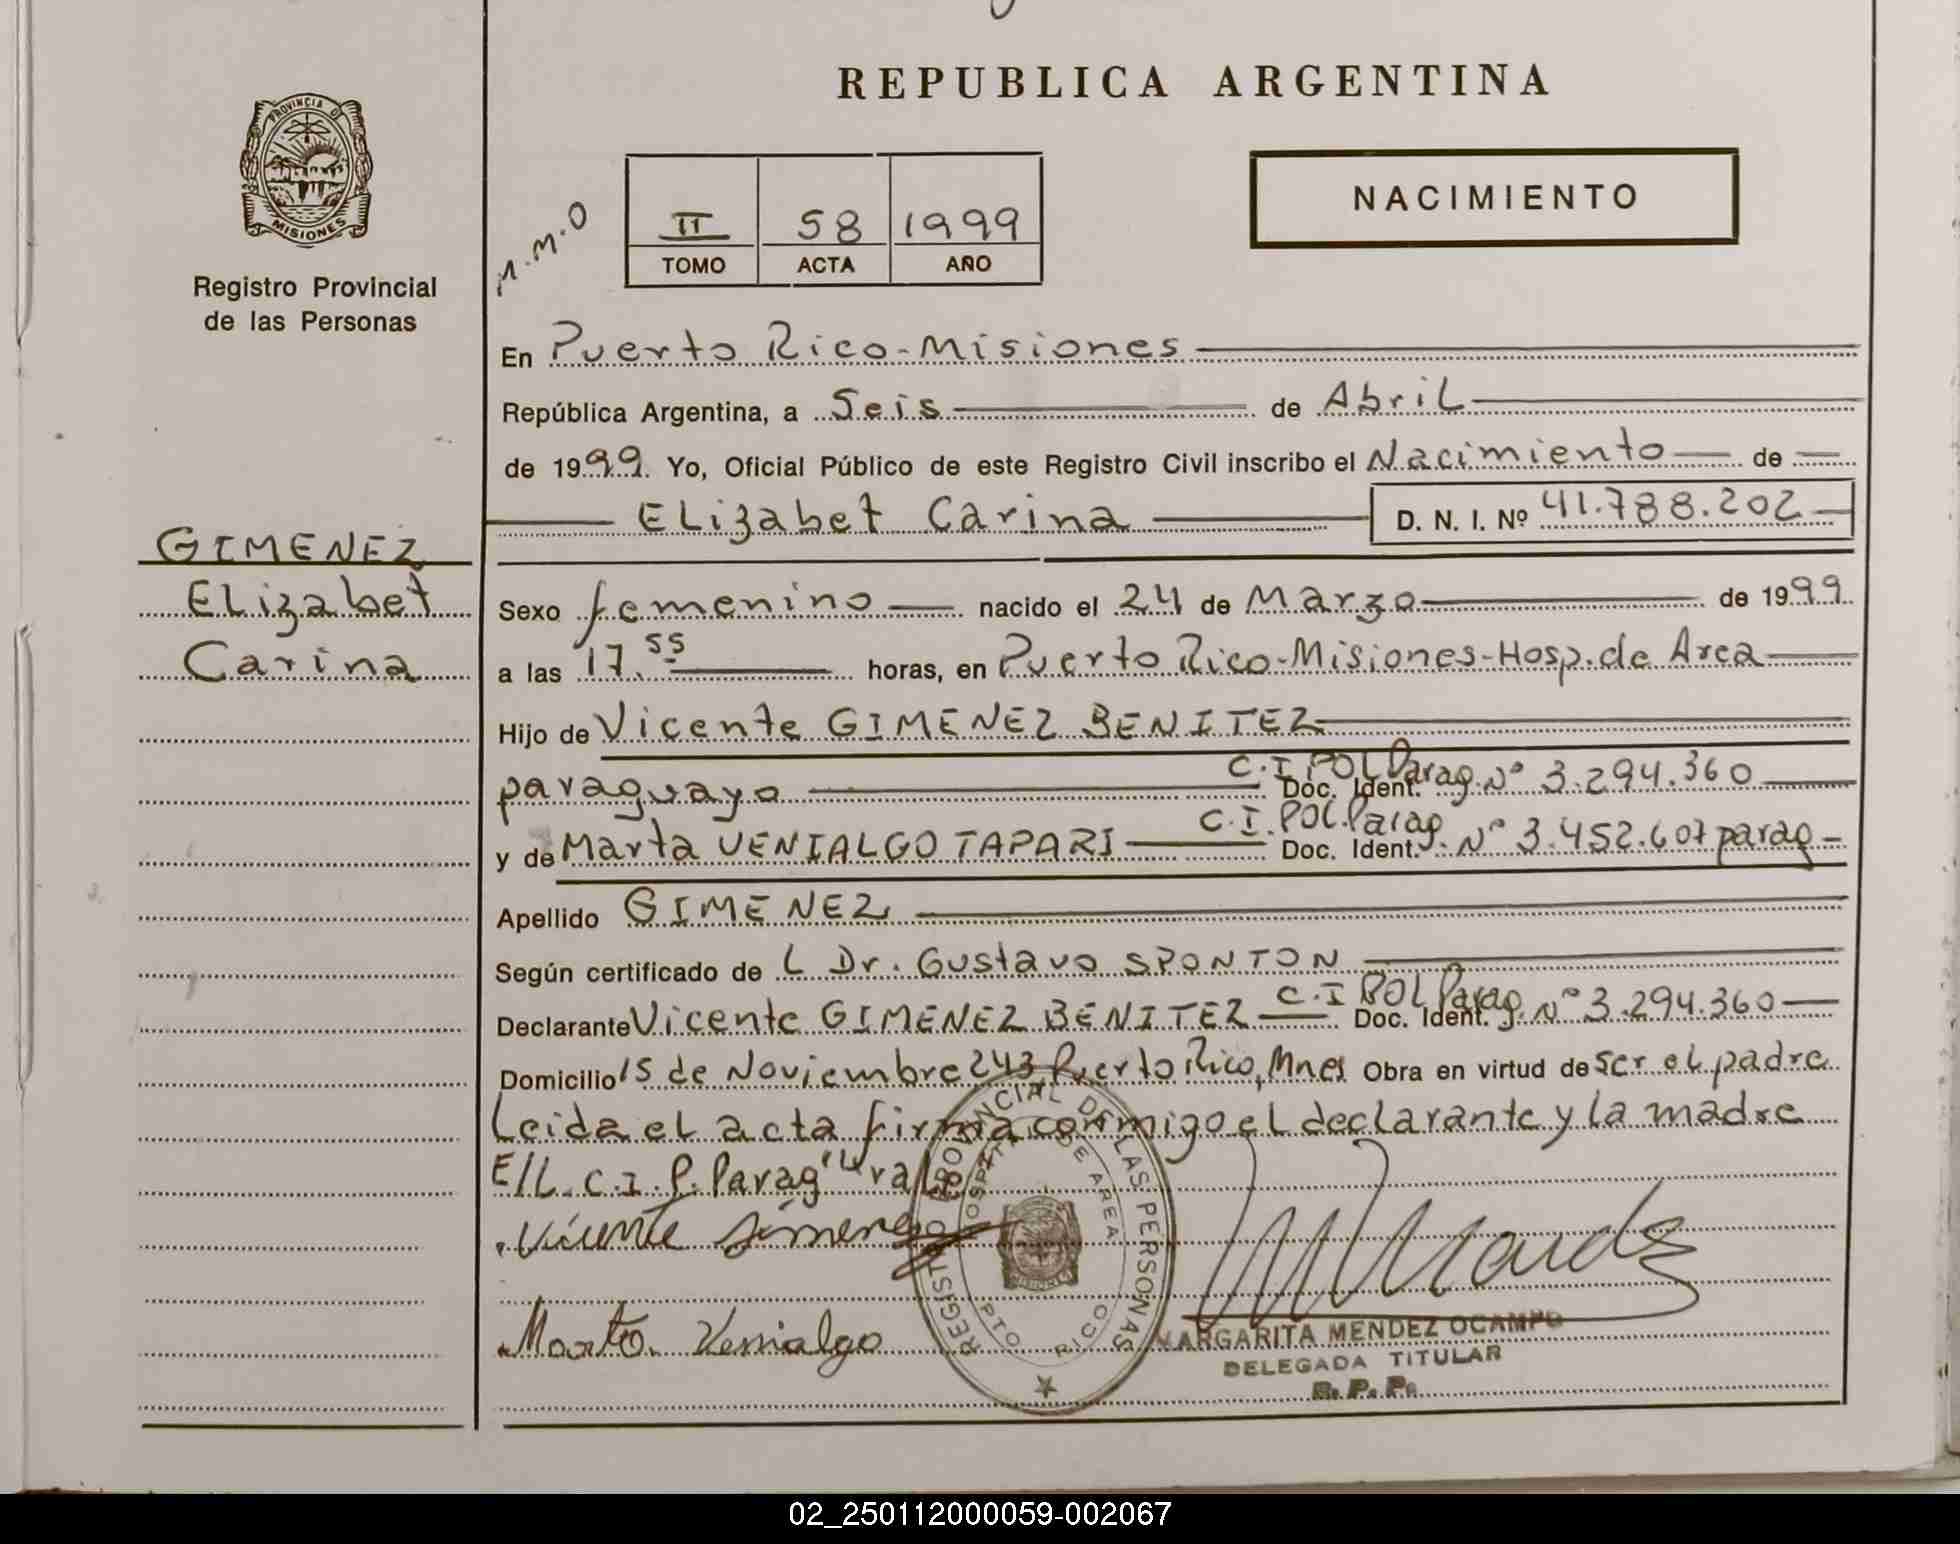 REPUBLICA ARGENTINA
PROVINCIA D
MISIONES
Registro Provincial
de las Personas
M.M.O
II 58 1999
TOMO ACTA AÑO
NACIMIENTO
En Puerto Rico-Misiones
República Argentina, a Seis de Abril
de 1999. Yo, Oficial Público de este Registro Civil inscribo el Nacimiento de
Elizabet Carina D. N. I. Nº 41.788.202
GIMENEZ
Elizabet
Carina
Sexo femenino nacido el 24 de Marzo de 1999
a las 17.55 horas, en Puerto Rico-Misiones-Hosp. de Area
Hijo de Vicente GIMENEZ BENITEZ
paraguayo Doc. Ident. C.I. POL Parag. Nº 3.294.360
y de Marta VENIALGO TAPARI Doc. Ident. C.I. POL. Parag. Nº 3.452.607 parag
Apellido GIMENEZ
Según certificado de L Dr. Gustavo SPONTON
Declarante Vicente GIMENEZ BENITEZ Doc. Ident. C.I POL Parag. Nº 3.294.360
Domicilio 15 de Noviembre 243 Puerto Rico, Mnes Obra en virtud de ser el padre
Leida el acta firma conmigo el declarante y la madre
E/L. C.I. P. Parag "4" vale
Vicente Gimenez
Marta Venialgo
REGISTRO PROVINCIAL DE LAS PERSONAS
HOSPITAL DE AREA
PTO RICO
MISIONES
MARGARITA MENDEZ OCAMPO
DELEGADA TITULAR
R. P. P.
02_250112000059-002067